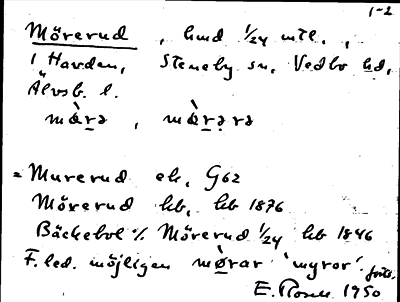 1-2
Mörerud, hmd 1/24 mtl.,
i Harden, Steneby sn, Vedbo hd,
Älvsb. l.
mœ̀rə, mœ̀rərə
= Murerud ek, G62
Mörerud hb, hb 1876
Bäckebol % Mörerud 1/24 hb 1846
F. led. möjligen mørar 'myror'
E. 1950